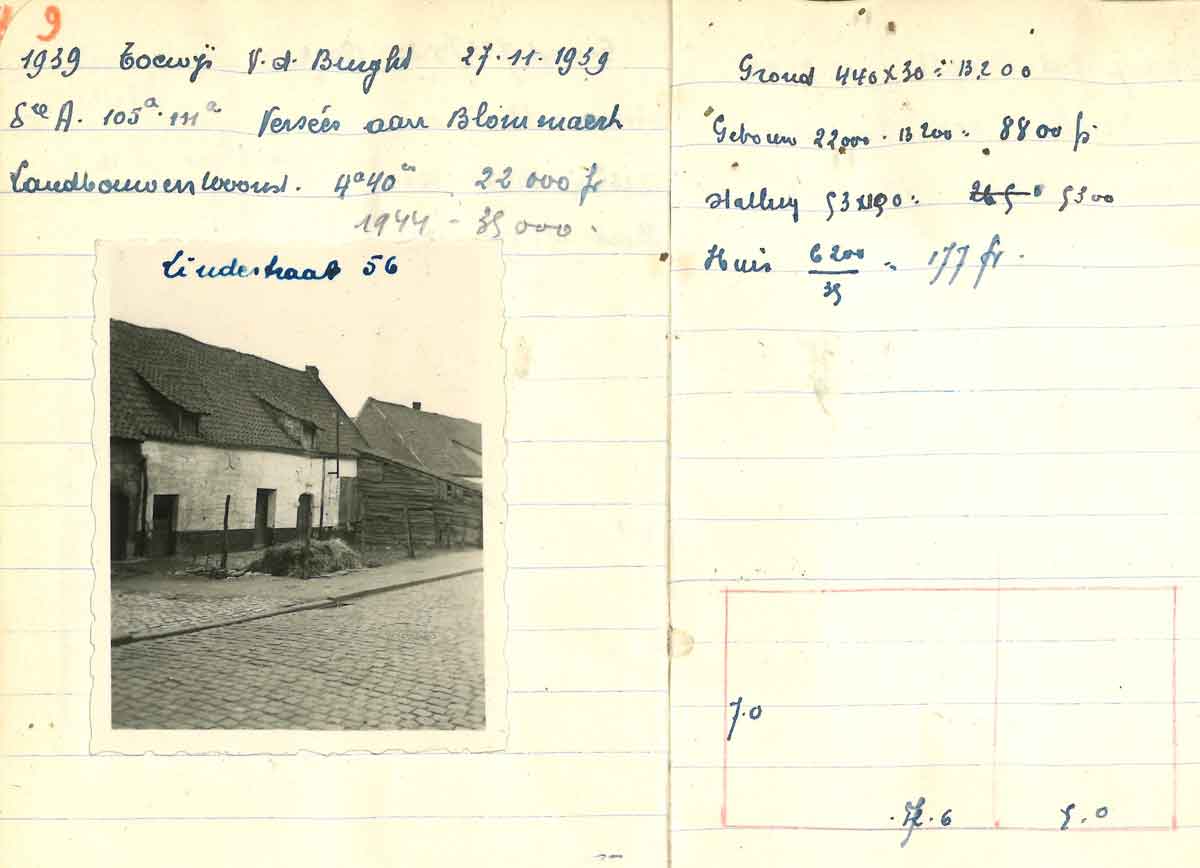 9
1939 Toewijs V.d. Burght 27.11.1939
Sie A. 105a. 111a Versées aan Blommaert
Landbouwerswoonst. 4a40 22 000 fr
1944 - 35 000.
Lindestraat 56
Grond 440 x 30 = 13.200
Gebouw 22000 - 13200 = 8800 fr
Stalling 53 x 100 = 5300
Huis 6200 / 35 = 177 fr.
7.0
6 5.0